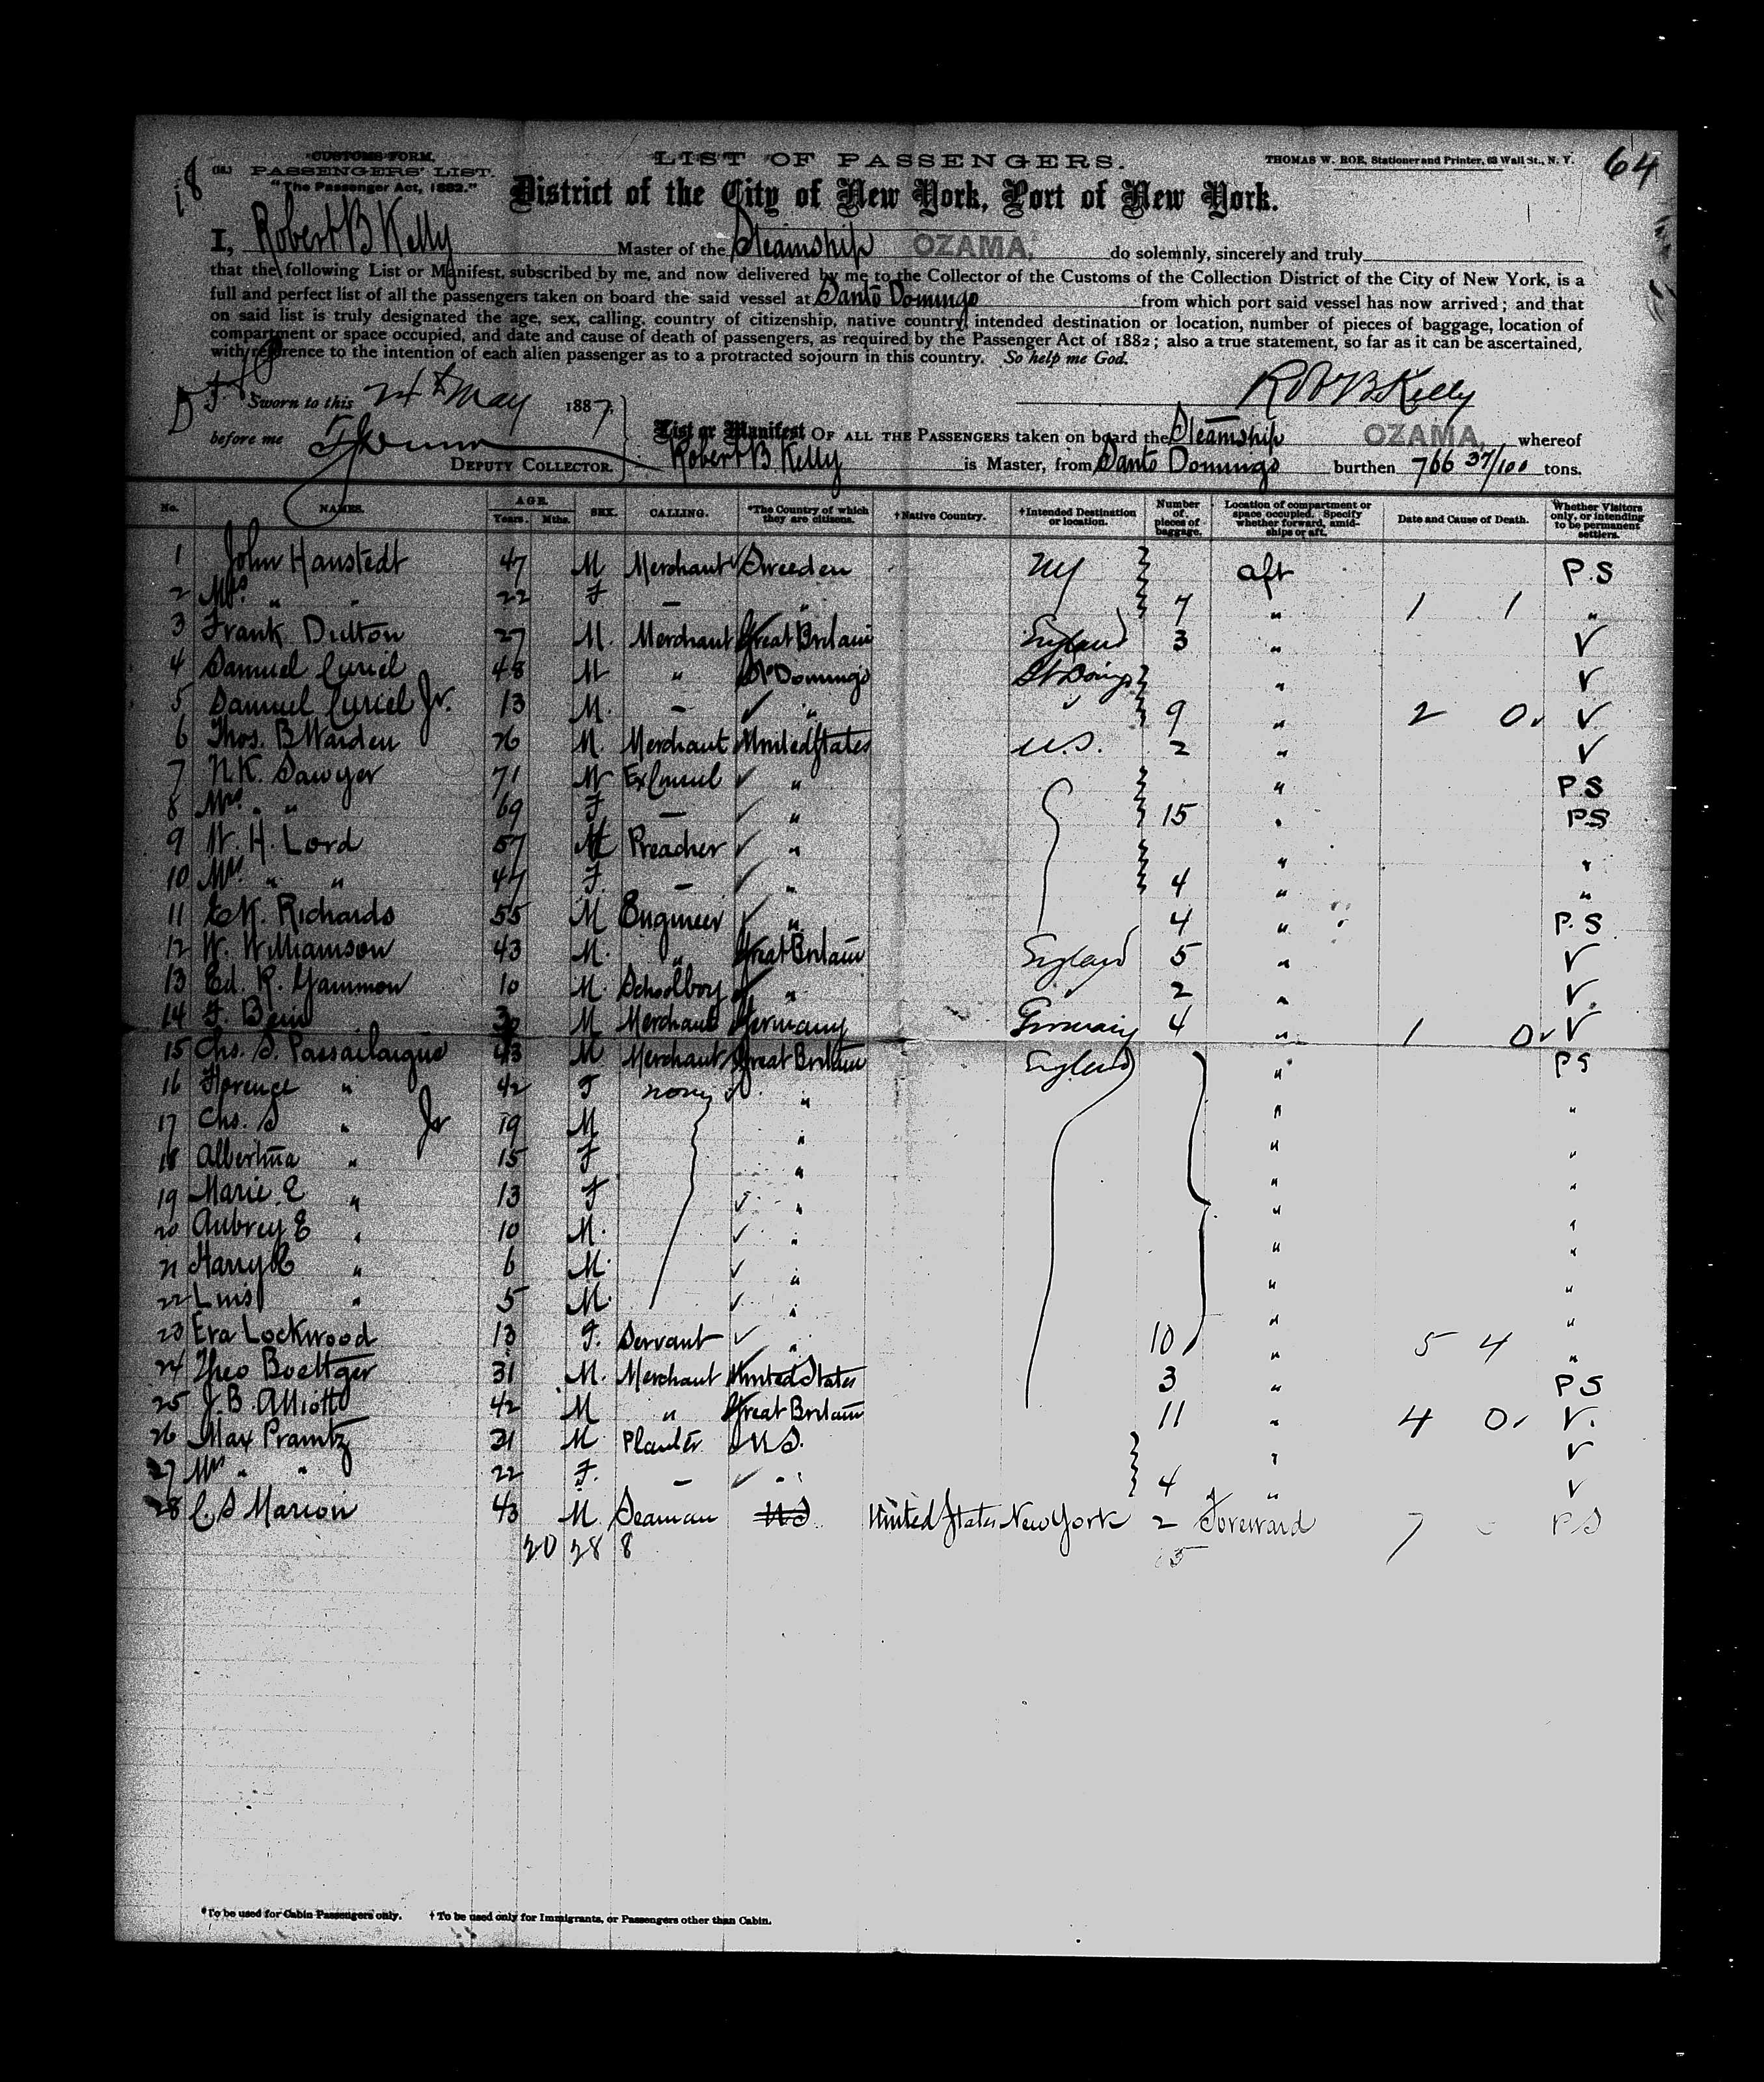 18
CUSTOMS FORM.
PASSENGERS' LIST.
"The Passenger Act, 1882."
LIST OF PASSENGERS.
THOMAS W. ROE, Stationer and Printer, 63 Wall St., N. Y.
64
District of the City of New York, Port of New York.
I, Robert B Kelly Master of the Steamship OZAMA, do solemnly, sincerely and truly
that the following List or Manifest, subscribed by me, and now delivered by me to the Collector of the Customs of the Collection District of the City of New York, is a
full and perfect list of all the passengers taken on board the said vessel at Santo Domingo from which port said vessel has now arrived; and that
on said list is truly designated the age, sex, calling, country of citizenship, native country, intended destination or location, number of pieces of baggage, location of
compartment or space occupied, and date and cause of death of passengers, as required by the Passenger Act of 1882; also a true statement, so far as it can be ascertained,
with reference to the intention of each alien passenger as to a protracted sojourn in this country. So help me God.
Sworn to this 24th May 1887. Robt B Kelly
before me
DEPUTY COLLECTOR.
List or Manifest OF ALL THE PASSENGERS taken on board the Steamship OZAMA, whereof
Robert B Kelly is Master, from Santo Domingo burthen 766 37/100 tons.
No. NAMES. AGE. Years. Mths. SEX. CALLING. *The Country of which they are citizens. †Native Country. †Intended Destination or location. Number of pieces of baggage. Location of compartment or space occupied. Specify whether forward, amidships or aft. Date and Cause of Death. Whether Visitors only, or intending to be permanent settlers.
1 John Hanstedt 47 M Merchant Sweeden NY aft P.S
2 Mrs " " 22 F — " 7 " 1 1 "
3 Frank Dutton 27 M. Merchant Great Britain England 3 " V
4 Samuel Curiel 48 M " St Domingo St Doingo " V
5 Samuel Curiel Jr. 13 M. — " 9 " 2 0 V
6 Thos. B Warden 26 M. Merchant United States U.S. 2 " V
7 N.K. Sawyer 71 M Ex Consul " " P.S
8 Mrs " " 69 F — " 15 " PS
9 W. H. Lord 57 M Preacher " " "
10 Mrs " " 47 F. — " 4 " "
11 E K. Richards 55 M Engineer " 4 " P.S
12 W. Williamson 43 M. " Great Britain England 5 " V
13 Ed. R. Gammon 10 M. Schoolboy " 2 " V.
14 F. Bein M Merchant Germany Germany 4 " 1 0 V
15 Chs. S. Passailaigue 43 M Merchant Great Britain England " PS
16 Florence " 42 F none " " "
17 Chs. S " Jr 19 M " " "
18 Albertina " 15 F " " "
19 Marie E " 13 F " " "
20 Aubrey E " 10 M. " " "
21 Harry " 6 M. " " "
22 Luis " 5 M. " " "
23 Eva Lockwood 13 F. Servant " 10 " 5 4 "
24 Theo Boettger 31 M. Merchant United States 3 " PS
25 J.B. Alliott 42 M " Great Britain 11 " 4 0 V.
26 Max Prantz 31 M Planter U S. " V
27 Mrs " " 22 F. — " 4 " V
28 C. S Marion 43 M. Seaman US United States New York 2 Foreward 7 PS
20 28 8
*To be used for Cabin Passengers only. †To be used only for Immigrants, or Passengers other than Cabin.